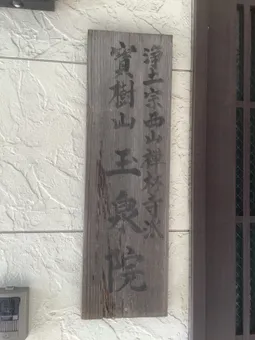 浄土宗西山禅林寺派
寳樹山 玉泉院